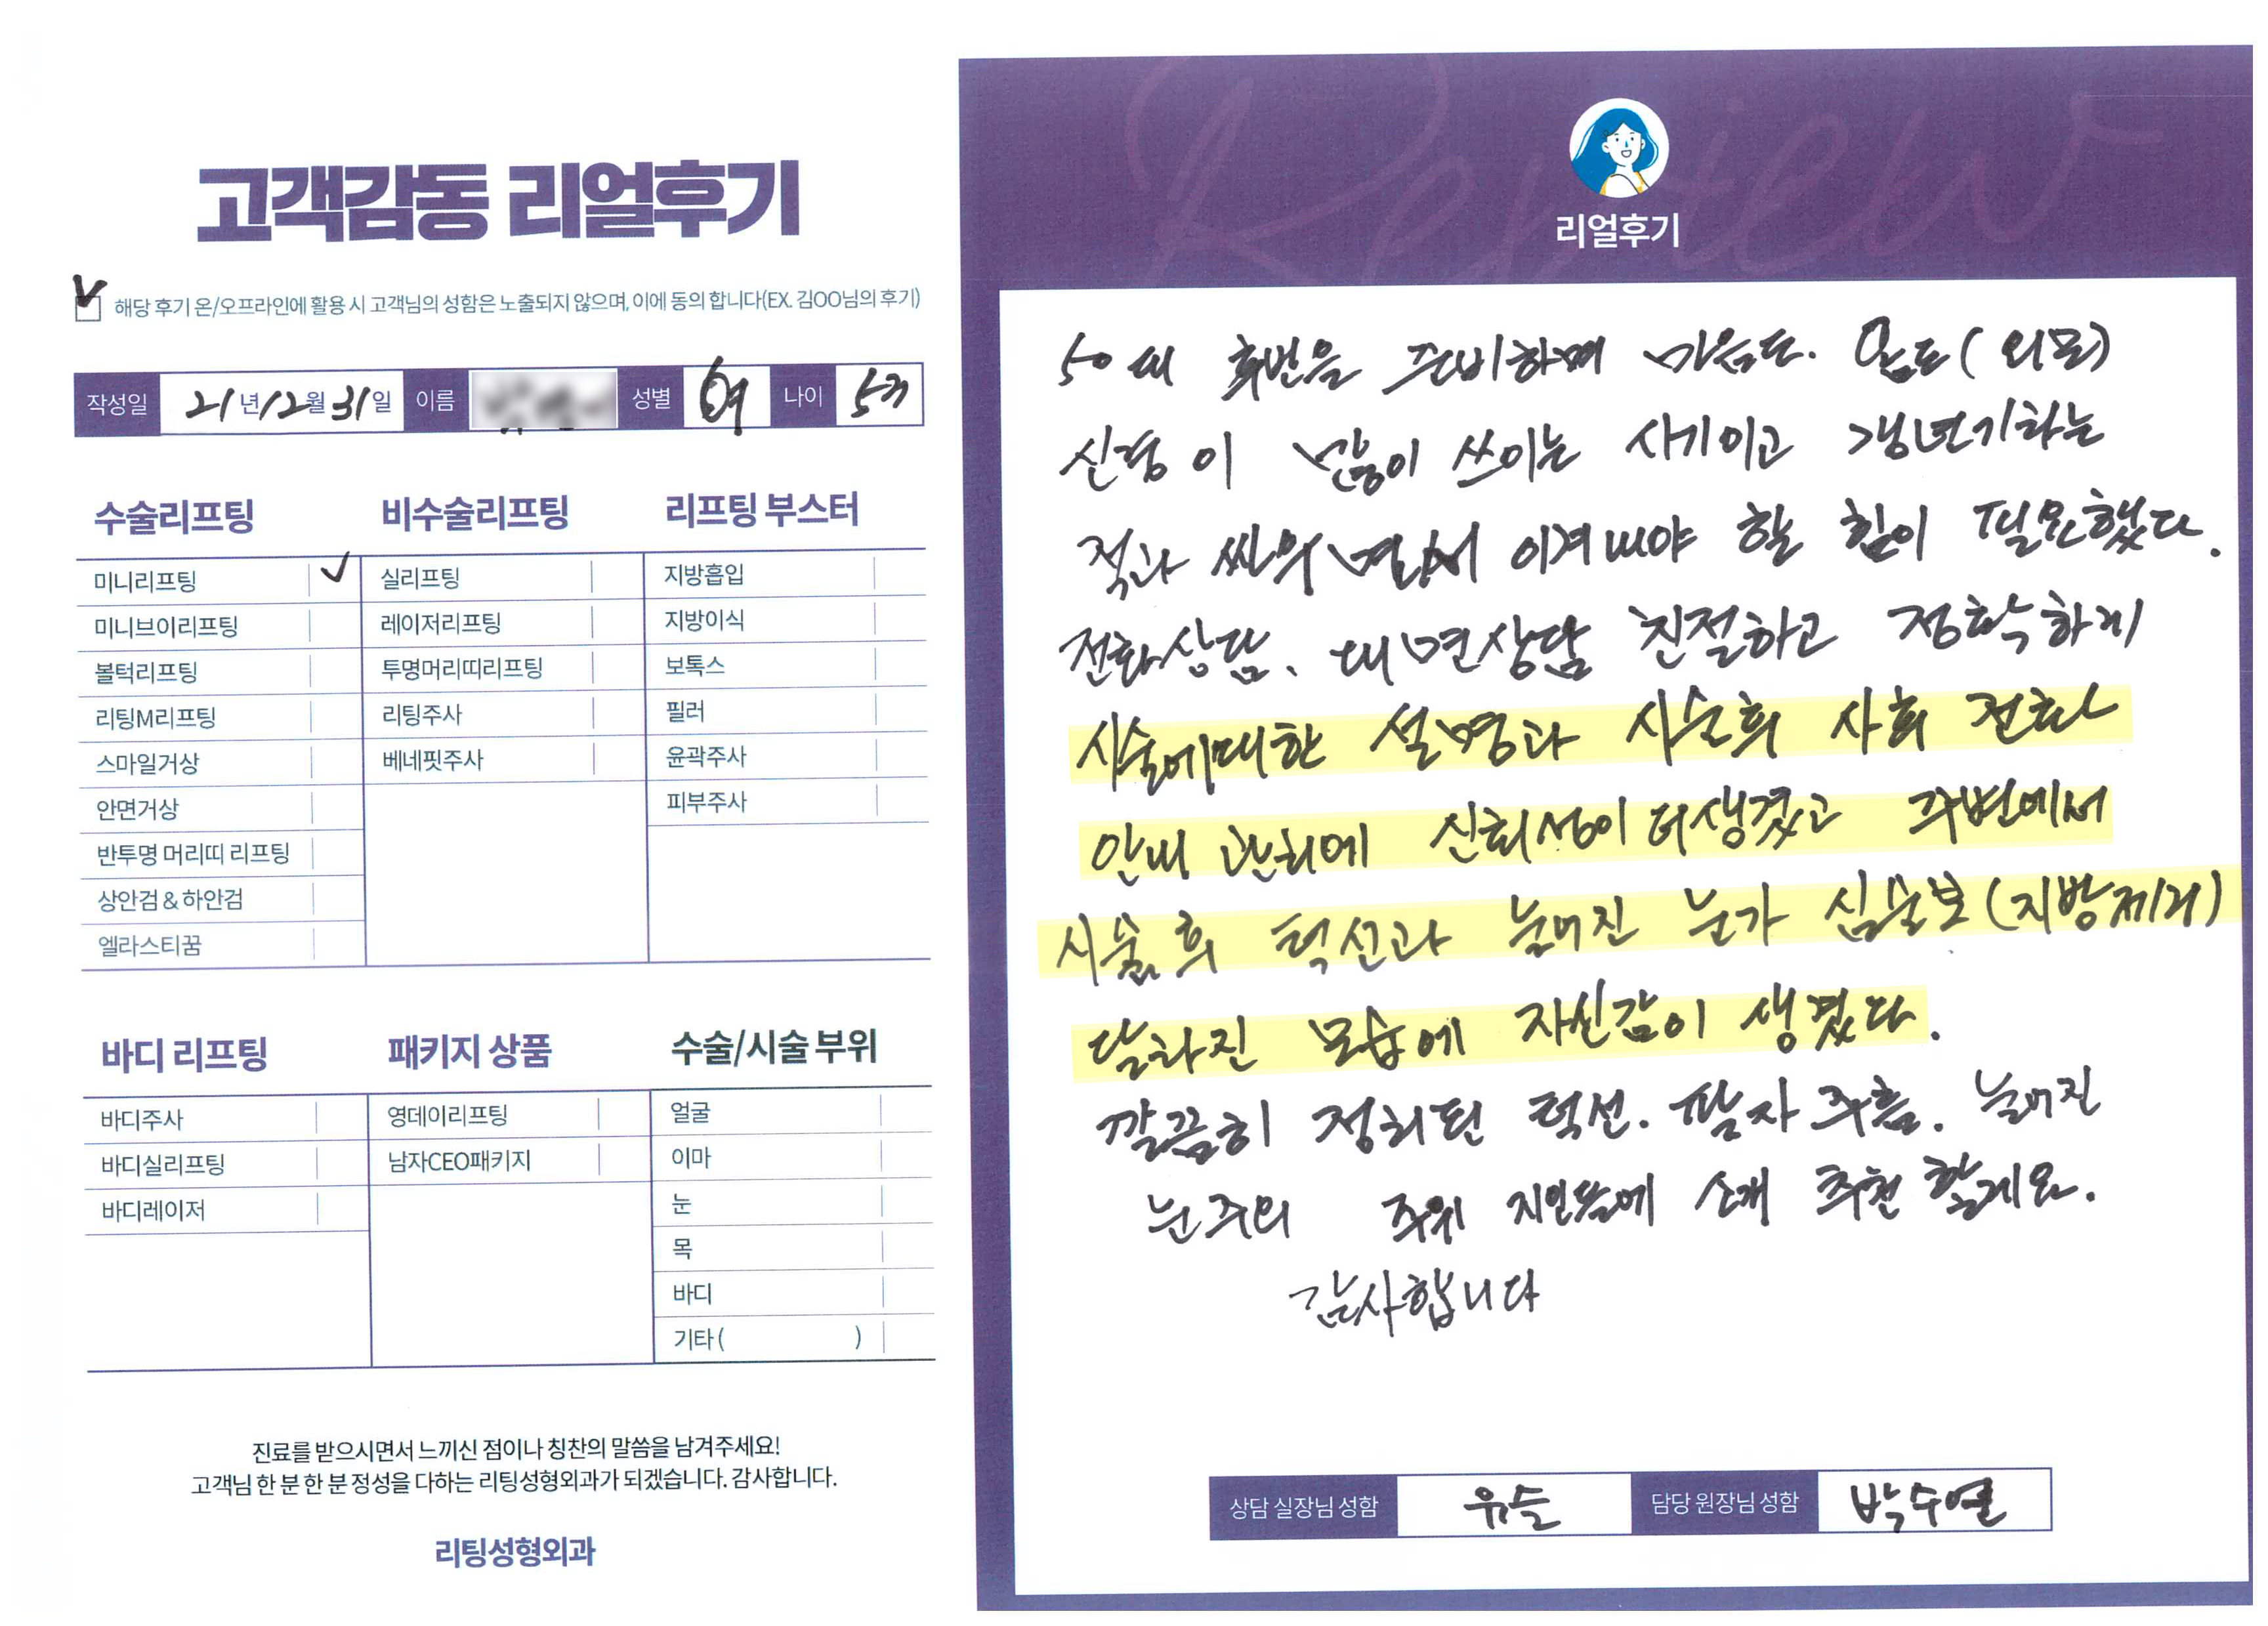 고객감동 리얼후기
해당 후기 온/오프라인에 활용 시 고객님의 성함은 노출되지 않으며, 이에 동의 합니다(EX. 김OO님의 후기)
작성일 21년 12월 31일 이름 성별 여 나이 53
수술리프팅
미니리프팅
미니브이리프팅
볼턱리프팅
리팅M리프팅
스마일거상
안면거상
반투명 머리띠 리프팅
상안검 & 하안검
엘라스티꿈
비수술리프팅
실리프팅
레이저리프팅
투명머리띠리프팅
리팅주사
베네핏주사
리프팅 부스터
지방흡입
지방이식
보톡스
필러
윤곽주사
피부주사
바디 리프팅
바디주사
바디실리프팅
바디레이저
패키지 상품
영데이리프팅
남자CEO패키지
수술/시술 부위
얼굴
이마
눈
목
바디
기타 ( )
진료를 받으시면서 느끼신 점이나 칭찬의 말씀을 남겨주세요!
고객님 한 분 한 분 정성을 다하는 리팅성형외과가 되겠습니다. 감사합니다.
리팅성형외과
Review
리얼후기
50대 후반을 준비하며 마음도. 몸도(외모)
신경이 많이 쓰이는 시기이고 갱년기하는
적과 싸우면서 이겨내야 할 힘이 필요했다.
전화상담. 대면상담 친절하고 정확하게
시술에대한 설명과 시술후 사후 전화
안내 관리에 신뢰성이 더생겼고 주변에서
시술 후 턱선과 늘어진 눈가 심술보(지방제거)
달라진 모습에 자신감이 생겼다.
깔끔히 정리된 턱선. 팔자 주름. 늘어진
눈 주위 주위 지인들에 소개 추천 할게요.
감사합니다
상담 실장님 성함 유슬 담당 원장님 성함 박수열